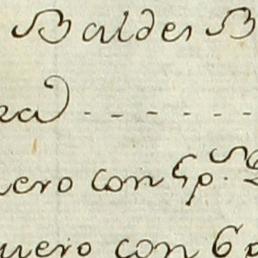 Baldes B
ra) - - - - - -
uero con 5p.
quero con 6p